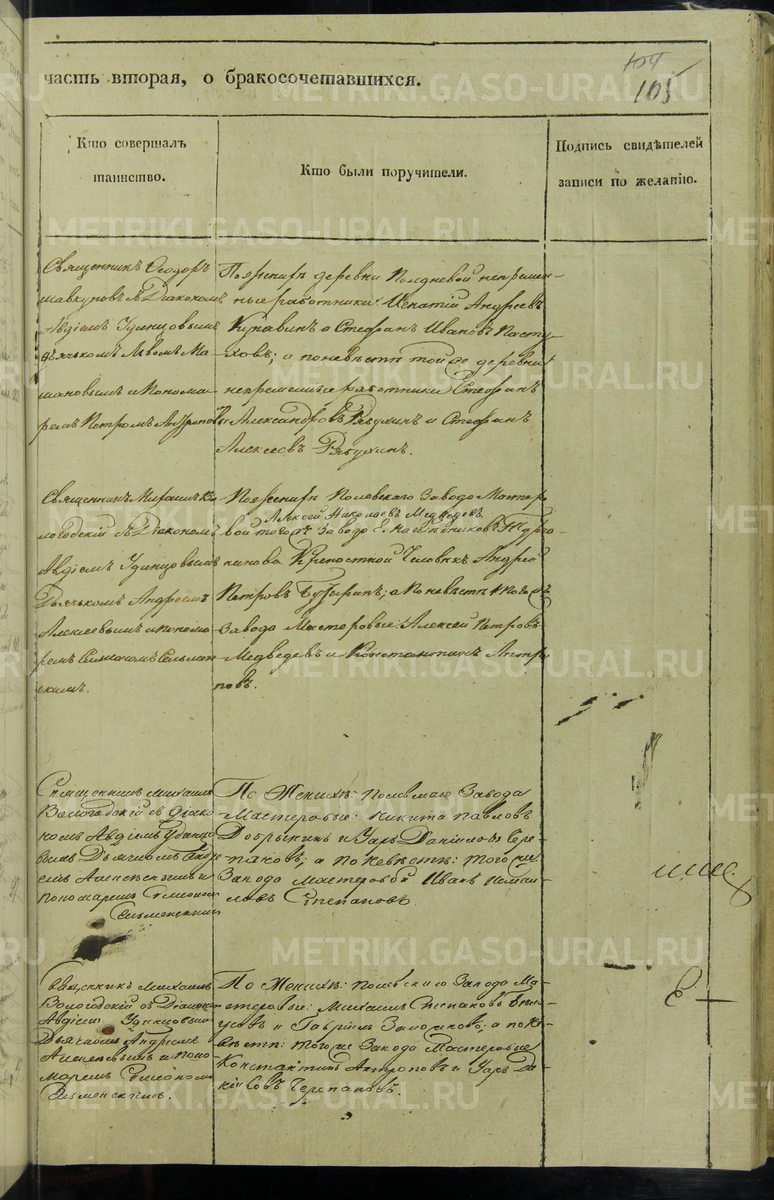 105
часть вторая, о бракосочетавшихся.
Кто совершалъ таинство.
Кто были поручители.
Подпись свидѣтелей записи по желанію.
Священникъ Ѳеодоръ
съ Діакономъ
Авдіемъ Удинцовымъ
и Понома-
ремъ Петромъ
По женихѣ деревни Полдневой непремен-
ные работники: Игнатій Андреевъ
и Стефанъ Ивановъ Пасту-
ховъ; а по невѣстѣ той же деревни
непременные работники Стефанъ
Александровъ и Стефанъ
Алексеевъ
Священникъ Михаилъ Во-
логодскій съ Діакономъ
Авдіемъ Удинцовымъ
Дьячкомъ Андреемъ
Алексеевымъ и Понома-
ремъ Симеономъ Сельмен-
скимъ.
По женихѣ Полевскаго Завода Мастеро-
вой Алексей Николаевъ Медведевъ
тогожъ Завода
Крепостной Человекъ Андрей
Петровъ; а по невѣстѣ тогожъ
Завода Мастеровые Алексей Петровъ
Медведевъ и Константинъ Антро-
повъ.
Священникъ Михаилъ
Вологодскій съ Діако-
номъ Авдіемъ Удинцо-
вымъ Дьячкомъ Андре-
емъ Алексеевымъ и
Пономаремъ Симеоном
Сельменскимъ
По Женихѣ: Полевскаго Завода
Мастеровые: Никита Павловъ
Добрынинъ и Уаръ Даніиловъ Чере-
пановъ; а по невѣстѣ: тогоже
Завода Мастеровой Иванъ
Степановъ
Священникъ Михаилъ
Вологодскій съ Діакономъ
Авдіемъ Удинцовымъ
Дьячкомъ Андреемъ
Алексеевымъ и Поно-
маремъ Симеономъ
Сельменскимъ.
По Женихѣ: Полевскаго Завода Ма-
стеровые: Михаилъ Степановъ
и Гавріилъ; а по не-
вѣстѣ: тогоже Завода Мастеровые
Константинъ Антроповъ и Уаръ Да-
ніиловъ Черепановъ.
METRIKI.GASO-URAL.RU